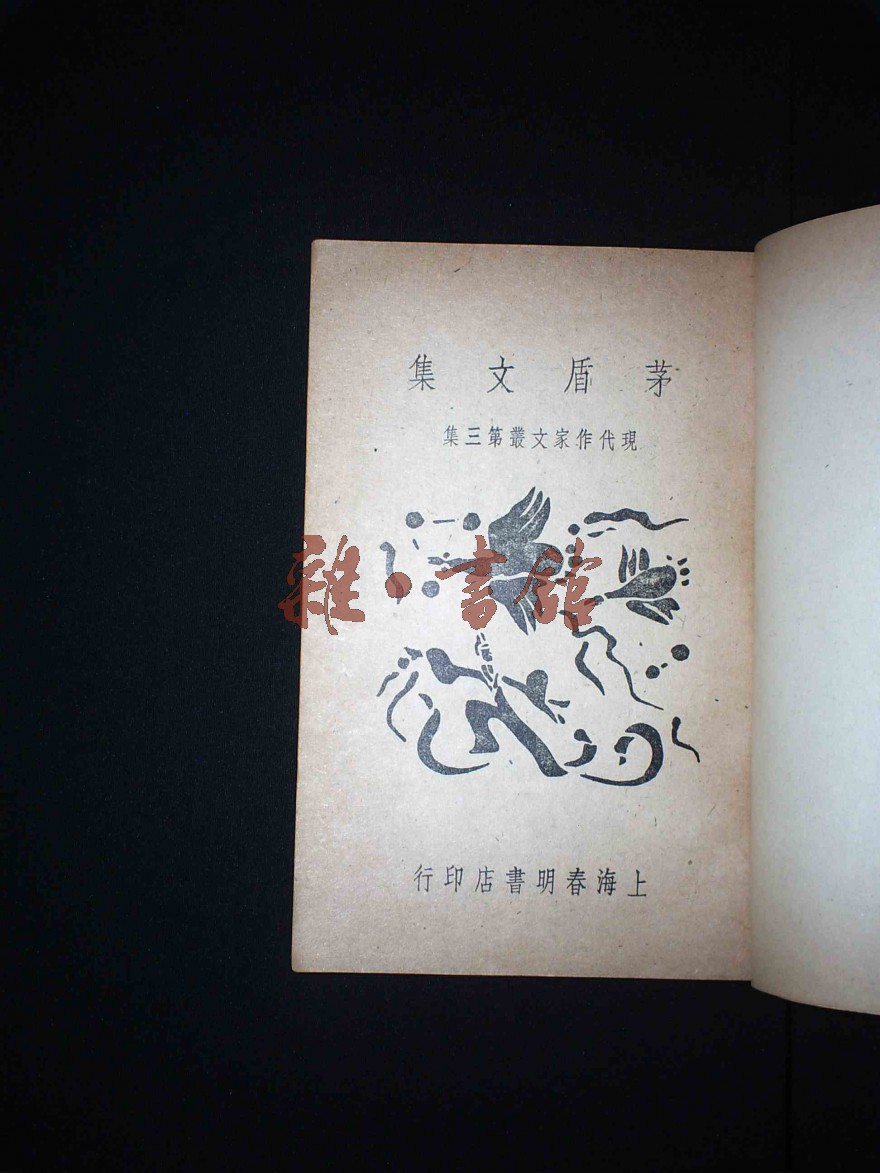 茅盾文集
現代作家文叢第三集
雜·書館
上海春明書店印行